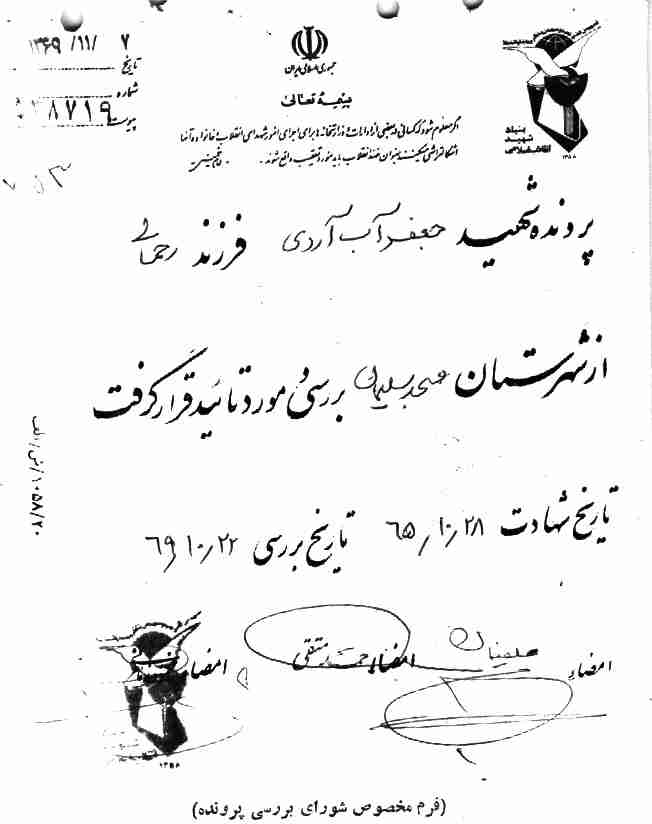 ۱۳۶۹/۱۱/ ۷
تاریخ
شماره
۸۷۱۹
پیوست
جمهوری اسلامی ایران
بسمه تعالی
اگر معلوم شود که کسانی در بعضی از ادارات و وزارتخانه‌ها برای اجرای امور شهدای انقلاب و خانواده آنها
اشکالتراشی میکنند بعنوان ضد انقلاب باید مورد تعقیب واقع شوند. امام خمینی
بنیاد
شهید
انقلاب اسلامی
۱۳۵۸
پرونده شهید جعفر آب آردی فرزند رحمان
از شهرستان مسجد سلیمان بررسی و مورد تائید قرار گرفت
۱۰۵۸/۲۰/ش/الف
تاریخ شهادت ۶۵/۱۰/۲۸ تاریخ بررسی ۶۹/۱۰/۲۲
امضاء امضاء امضاء
۱۳۵۸
(فرم مخصوص شورای بررسی پرونده)